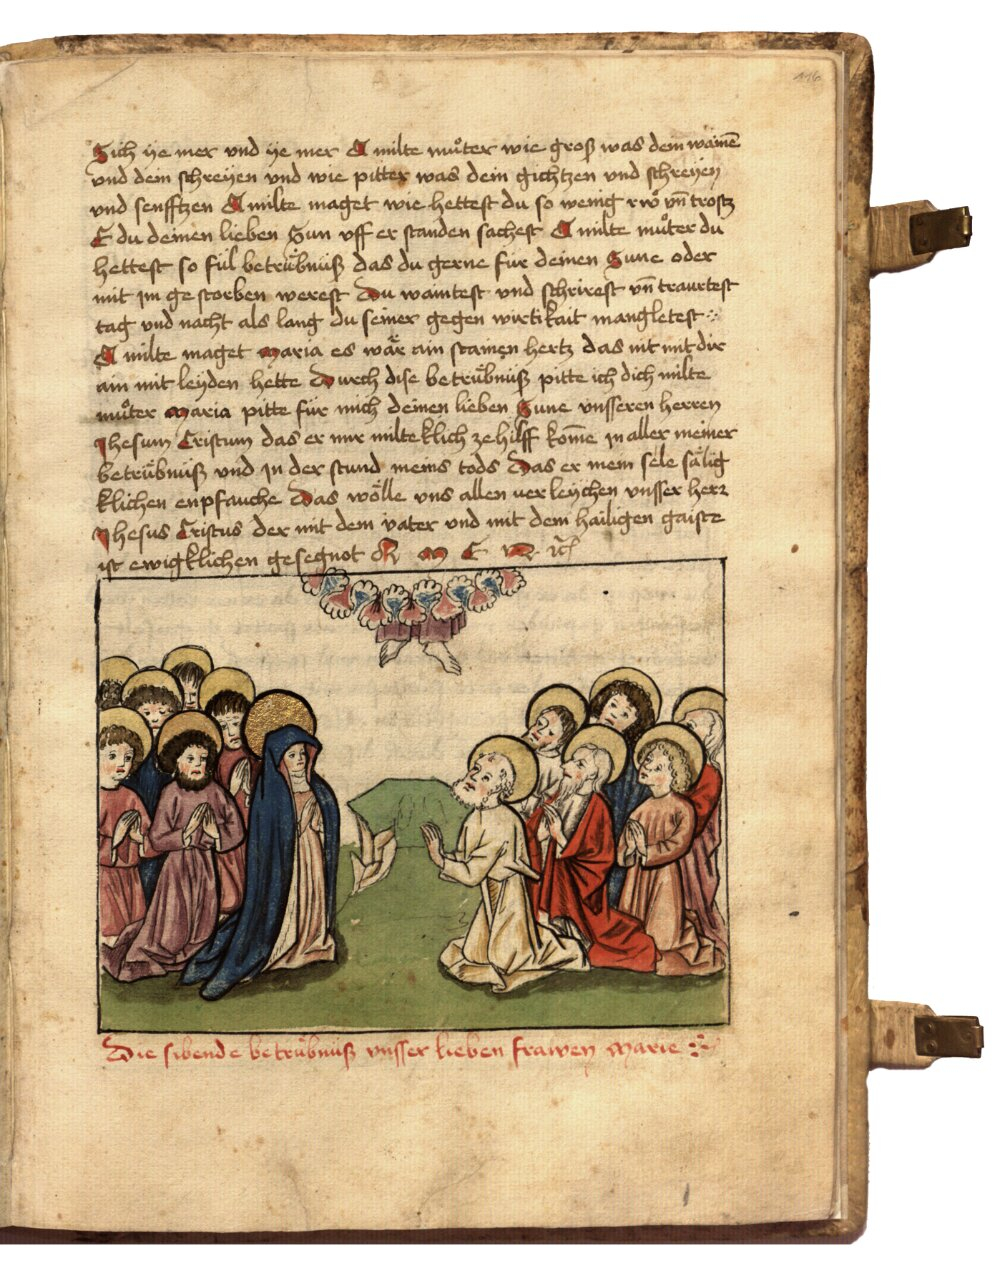 116
Sich ye mer vnd ye mer O milte muͦter wie groß was dein wainē
vnd dein schreyen vnd wie pitter was dein gichtzen vnd schreyen
vnd senfftzen O milte maget wie hettest du so wenig rwͦ vn̄ trostz
E du deinen lieben Sun vff er standen sachest O milte muͦter du
hettest so fül betruͤbnüß das du gerne für deinen Sune oder
mit jm ge storben werest Du waintest vnd schrirest vn̄ traurtest
tag vnd nacht als lang du seiner gegen wirtikait mangletest
O milte maget maria es waͤr ain stainen hertz das nit mit dir
ain mit leyden hette Durch dise betruͤbnüß pitte ich dich milte
muͦter maria pitte für mich deinen lieben Sune vnsseren herren
Jhesum Cristum das er mir milteklich ze hilff kom̄e jn aller meiner
betruͤbnüß vnd jn der stund meins tods Das er mein sele saͤlig
klichen enpfauche Das woͤlle vns allen ver leychen vnsser herr
Jhesus Cristus der mit dem vater vnd mit dem hailigen gaiste
ist ewigklichen gesegnot A M E N
Die sibende betruͤbnüß vnsser lieben frawen Marie